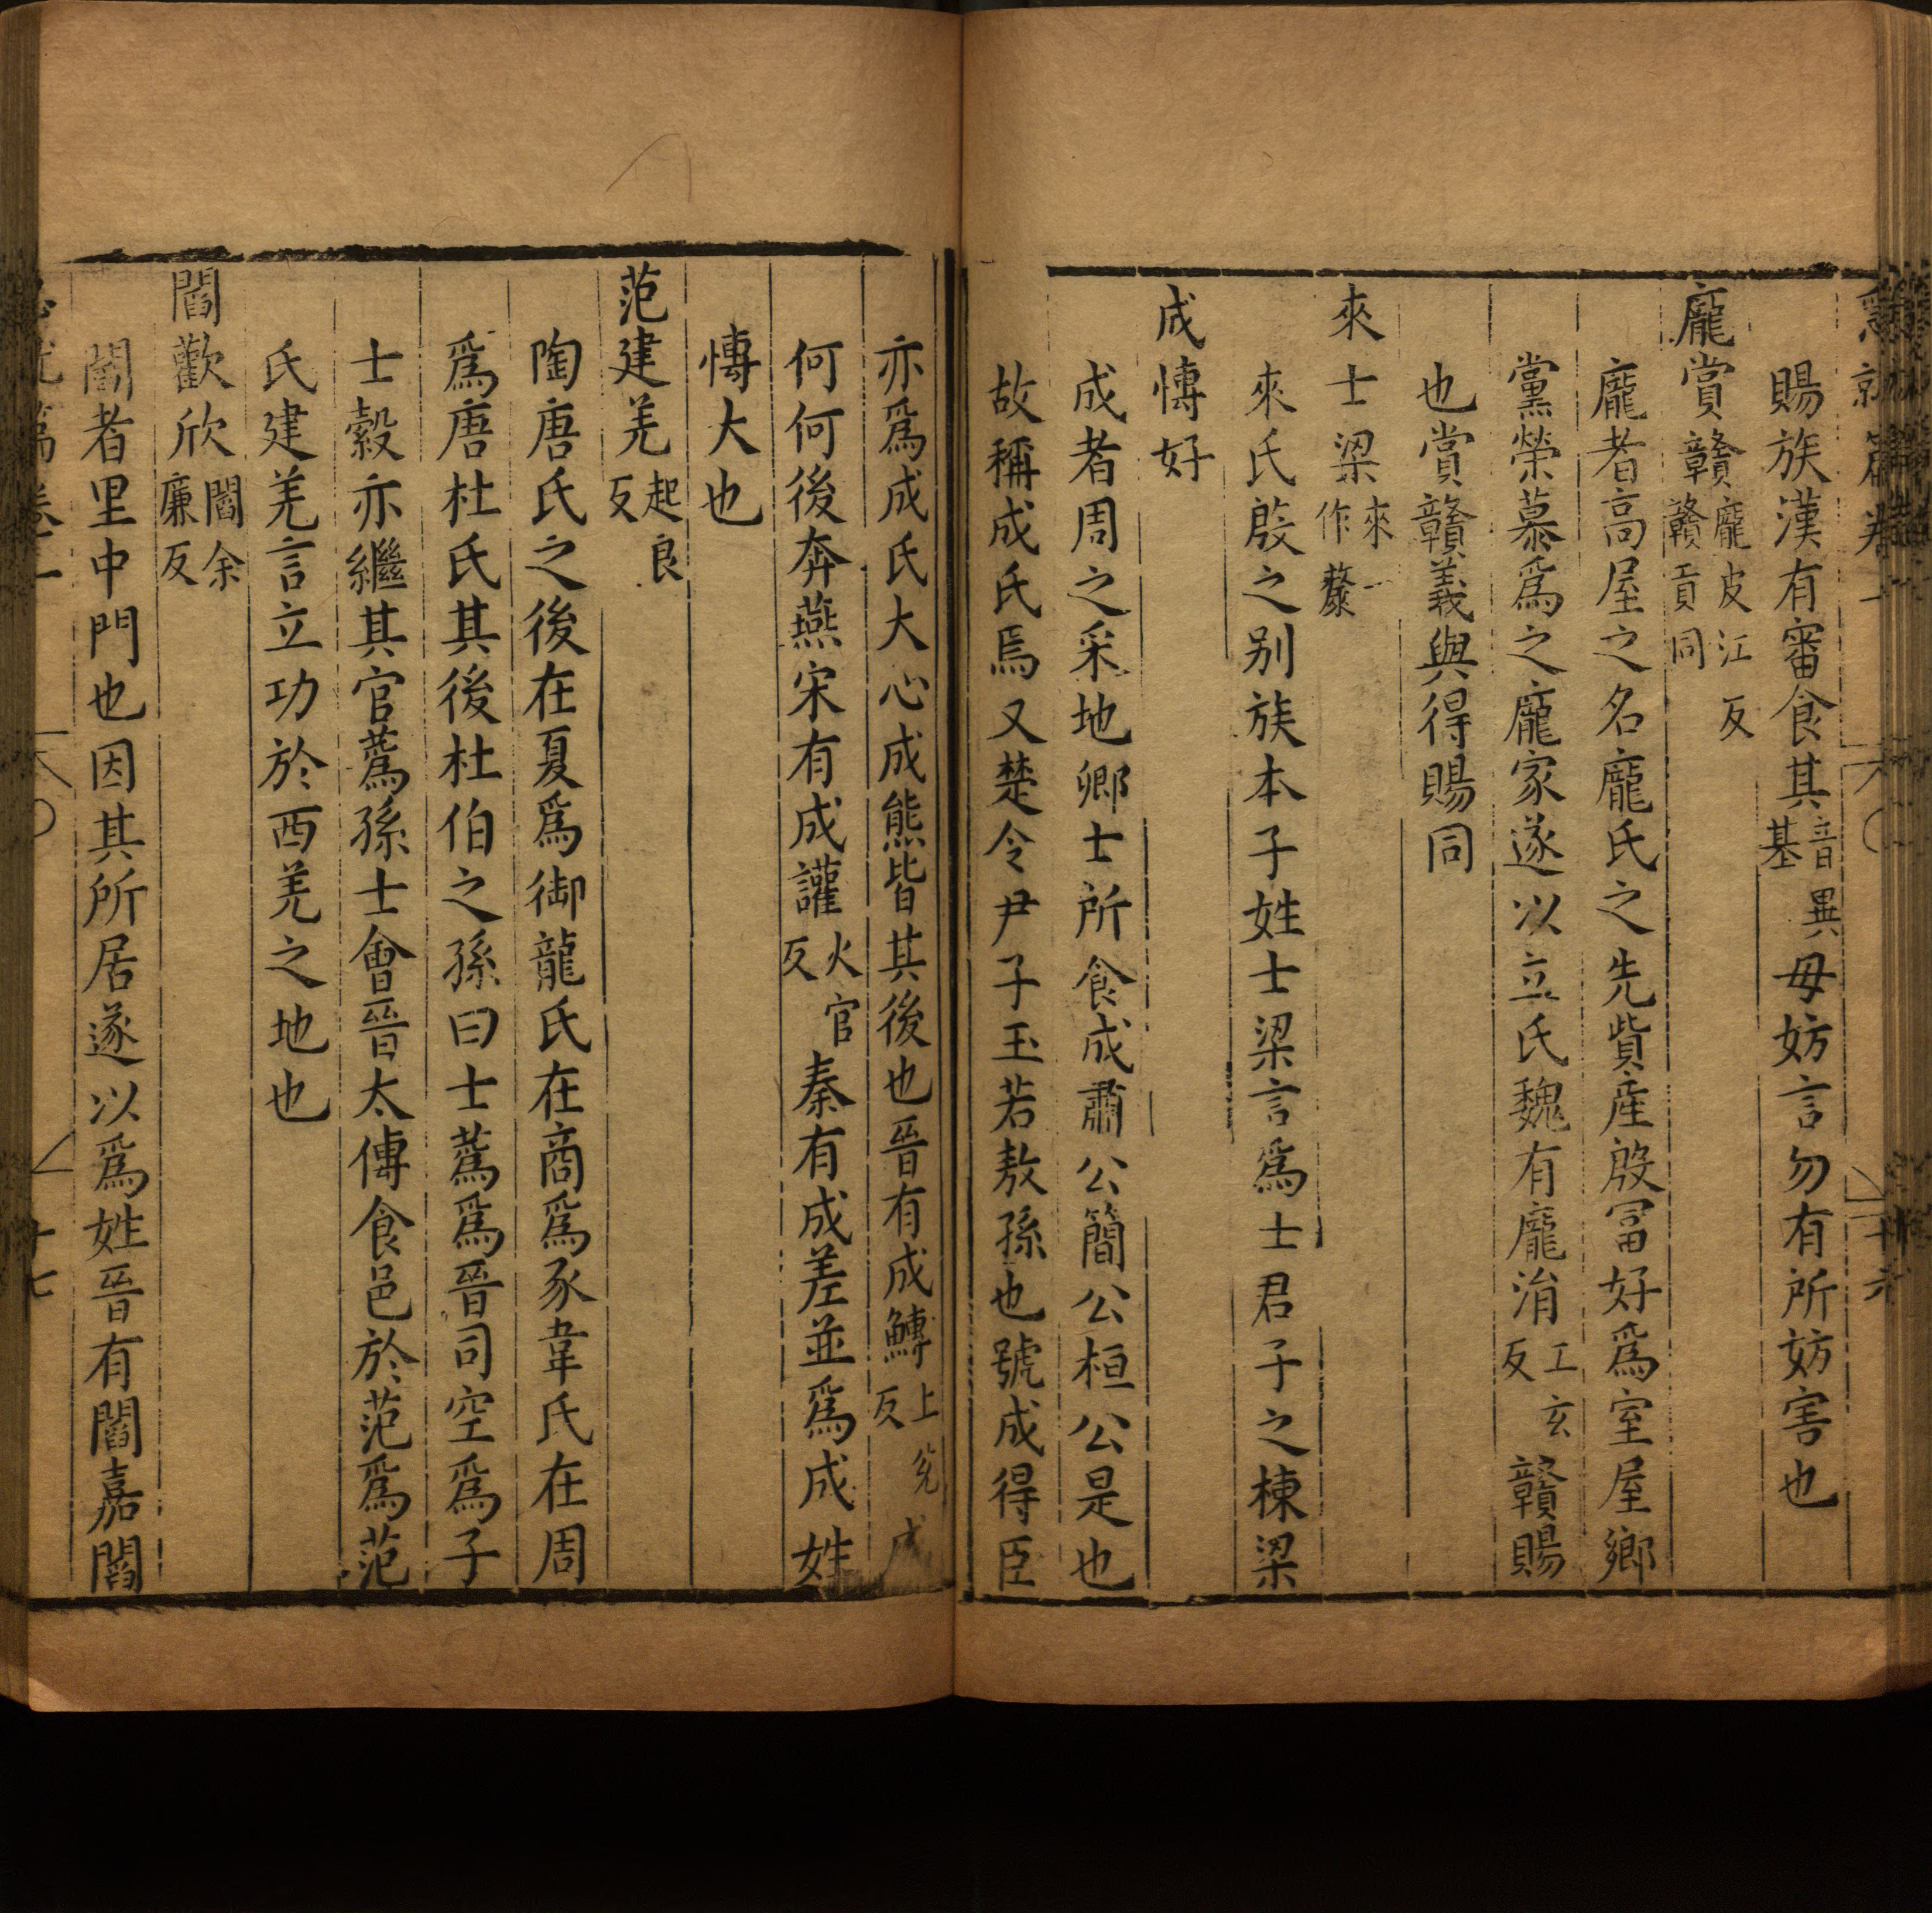 急就篇卷一
十六
賜族漢有審食其音異基毋妨言勿有所妨害也
龐賞贛龐皮江反贛貢同
龐者高屋之名龐氏之先貲產殷冨好爲室屋鄉
黨榮慕爲之龐家遂以立氏魏有龐涓工玄反贛賜
也賞贛義與得賜同
來士梁來一作釐
來氏殷之别族本子姓士梁言爲士君子之棟梁
成博好
成者周之采地卿士所食成肅公簡公桓公是也
故稱成氏焉又楚令尹子玉若敖孫也號成得臣
亦爲成氏大心成熊皆其後也晉有成鱄上兗反成
何何後奔燕宋有成讙火官反秦有成差並爲成姓
博大也
范建羌起良反
陶唐氏之後在夏爲御龍氏在商爲豕韋氏在周
爲唐杜氏其後杜伯之孫曰士蔿爲晉司空爲子
士縠亦繼其官蔿孫士會晉太傅食邑於范爲范
氏建羌言立功於西羌之地也
閻歡欣閻余廉反
閻者里中門也因其所居遂以爲姓晉有閻嘉閻
急就篇卷一
十七